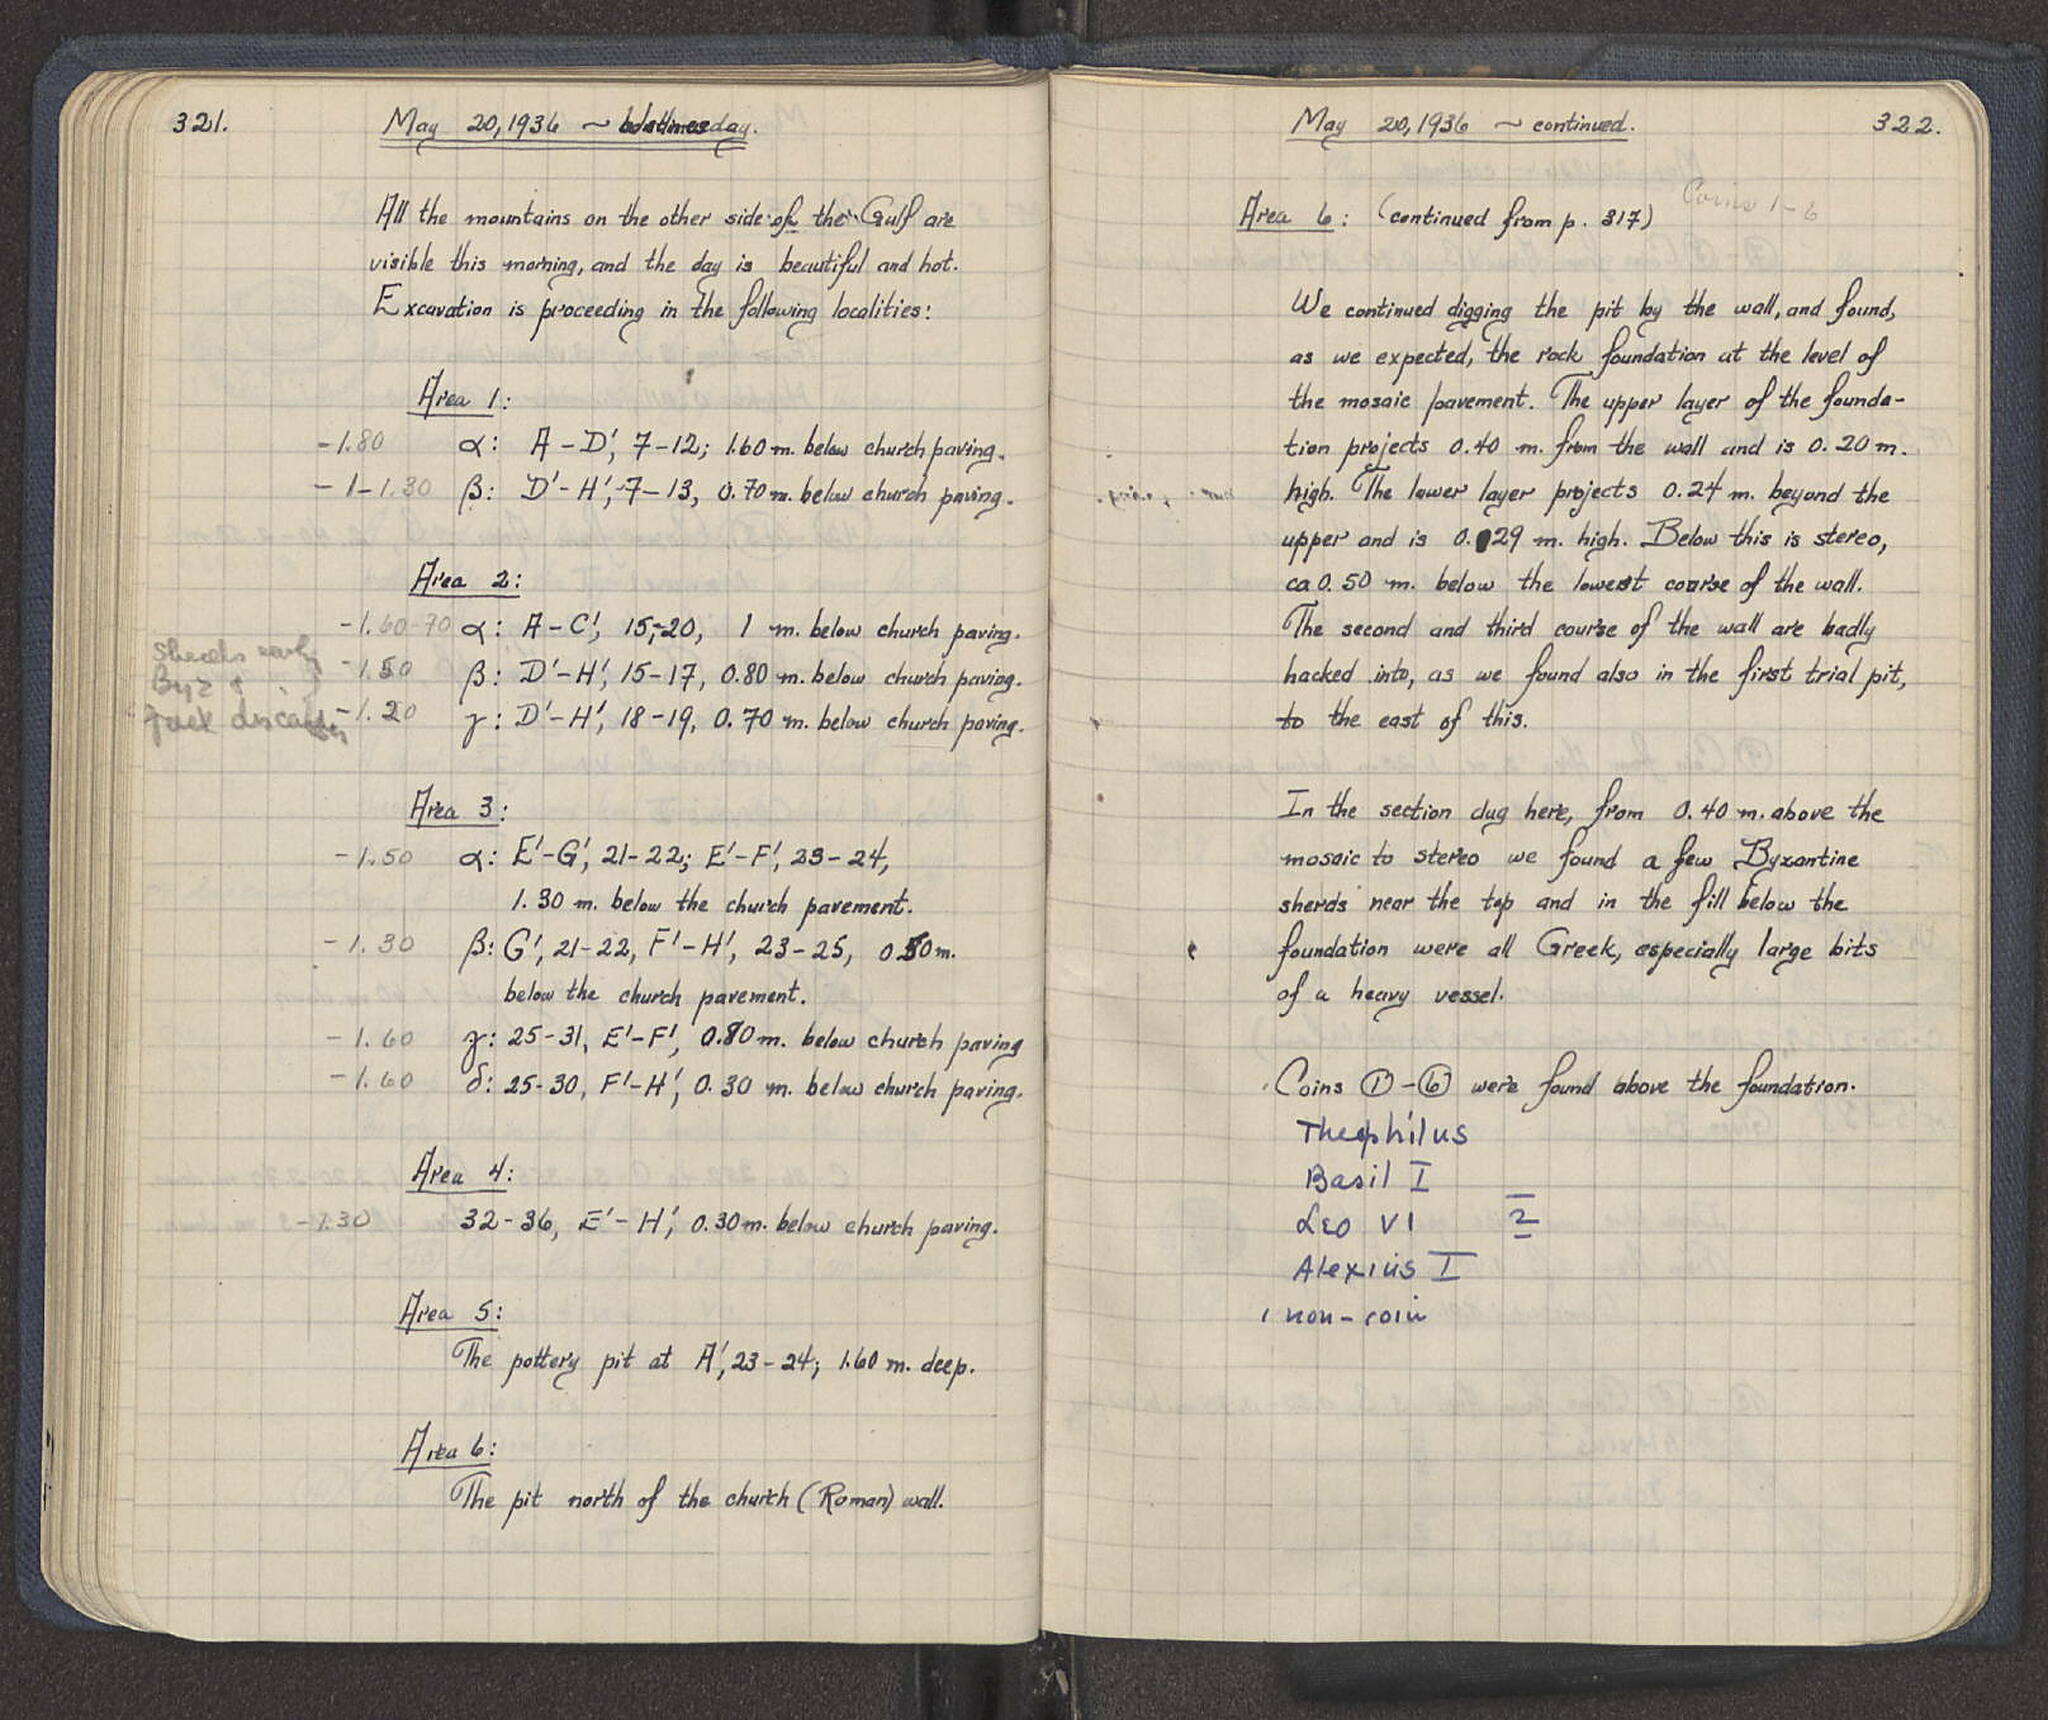 321.
May 20, 1936 ~ Wednesday.
All the mountains on the other side of the Gulf are
visible this morning, and the day is beautiful and hot.
Excavation is proceeding in the following localities:
Area 1:
-1.80 α: A-D', 7-12; 1.60 m. below church paving.
-1-1.30 β: D'-H', 7-13, 0.70 m. below church paving.
Area 2:
-1.60-70 α: A-C', 15-20, 1 m. below church paving.
-1.50 β: D'-H', 15-17, 0.80 m. below church paving.
-1.20 γ: D'-H', 18-19, 0.70 m. below church paving.
Sherds early
Byz &
Area 3:
-1.50 α: E'-G', 21-22; E'-F', 23-24,
1.30 m. below the church pavement.
-1.30 β: G', 21-22, F'-H', 23-25, 0.50 m.
below the church pavement.
-1.60 γ: 25-31, E'-F', 0.80 m. below church paving
-1.60 δ: 25-30, F'-H', 0.30 m. below church paving.
Area 4:
-1.30 32-36, E'-H', 0.30 m. below church paving.
Area 5:
The pottery pit at A', 23-24; 1.60 m. deep.
Area 6:
The pit north of the church (Roman) wall.
May 20, 1936 ~ continued.
322.
Coins 1-6
Area 6: (continued from p. 317)
We continued digging the pit by the wall, and found,
as we expected, the rock foundation at the level of
the mosaic pavement. The upper layer of the founda-
tion projects 0.40 m. from the wall and is 0.20 m.
high. The lower layer projects 0.24 m. beyond the
upper and is 0.29 m. high. Below this is stereo,
ca 0.50 m. below the lowest course of the wall.
The second and third course of the wall are badly
hacked into, as we found also in the first trial pit,
to the east of this.
In the section dug here, from 0.40 m. above the
mosaic to stereo we found a few Byzantine
sherds near the top and in the fill below the
foundation were all Greek, especially large bits
of a heavy vessel.
Coins ①-⑥ were found above the foundation.
Theophilus
Basil I
Leo VI 2
Alexius I
1 non-coin